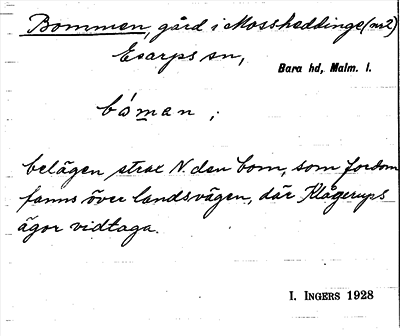 Bommen, gård i Mossheddinge (nr 2)
Esarps sn,
Bara hd, Malm. l.
bómen ;
belägen strax N. den bom, som fordom
fanns över landsvägen, där Klågerups
ägor vidtaga.
I. INGERS 1928